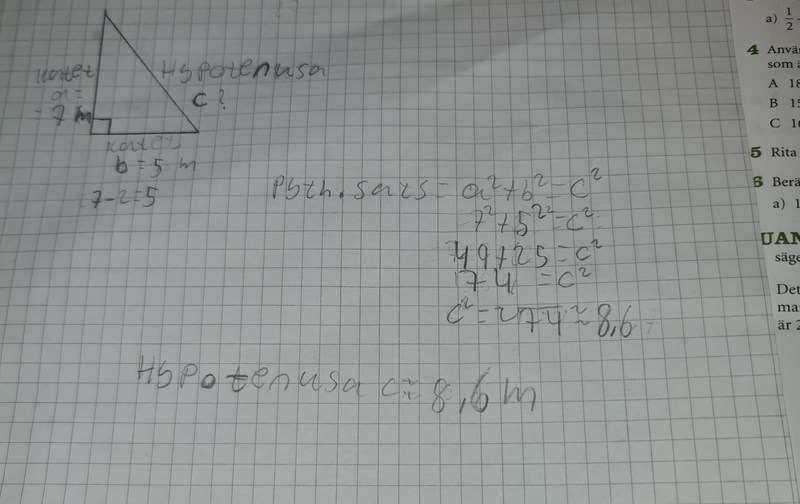 Katet
a =
7 m
Hypotenusa
c ?
Katet
b = 5 m
7-2=5
Pyth. sats = a² + b² = c²
7² + 5² = c²
49 + 25 = c²
74 = c²
c² = 274 ≈ 8,6
Hypotenusa c ≈ 8,6 m
a) 1/2
4 Använ
som
A 18
B 15
C 16
5 Rita
6 Berä
a) 1
UAN
säge
Det
ma
är 2